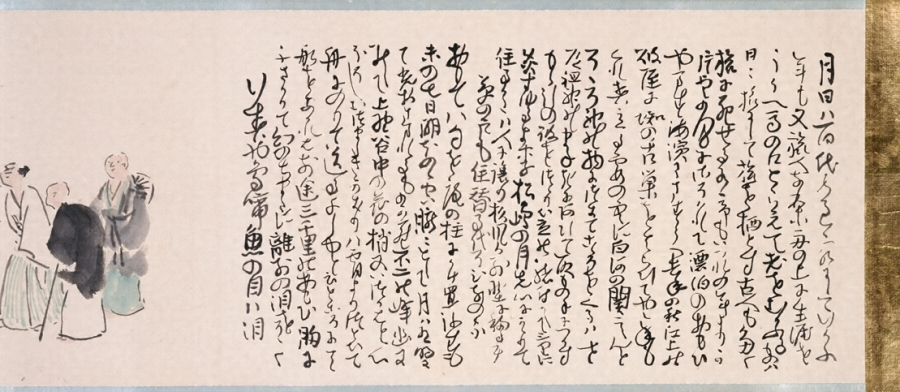 月日ハ百代の過客にして行かふ
年も又旅人也舟の上に生涯を
うかへ馬の口とらえて老をむかふるものハ
日ゝ旅にして旅を栖とす古人も多く
旅に死せるあり予もいつれの年よりか
片雲の風にさそはれて漂泊のおもひ
やます海濱にさすらへ去年の秋江上の
破屋に蜘の古巣をはらひてやゝ年も
くれ春立る霞の空に白河の関こえんと
そゝろ神の物につきてこゝろをくるハせ
道祖神のまねきにあひて取もの手につかす
もゝ引の破をつゝり笠の緒付かえて三里に
灸すゆるより松嶋の月先心にかゝりて
住る方ハ人に譲り杉風か別墅に移るに
草の戸も住替る代そひなの家
面八句を庵の柱に懸置弥生も
末の七日明ほのゝ空朧ゝとして月ハ在明
にて光おさまれるものから不二の峰幽に
みえて上野谷中の花の梢又いつかはと心
ほそしむつましきかきりハ宵よりつとひて
舟にのりて送る千しゆといふところにて
船をあかれは前途三千里のおもひ胸に
ふさかりて幻のちまたに離別の泪をそゝく
行春や鳥啼魚の目ハ泪